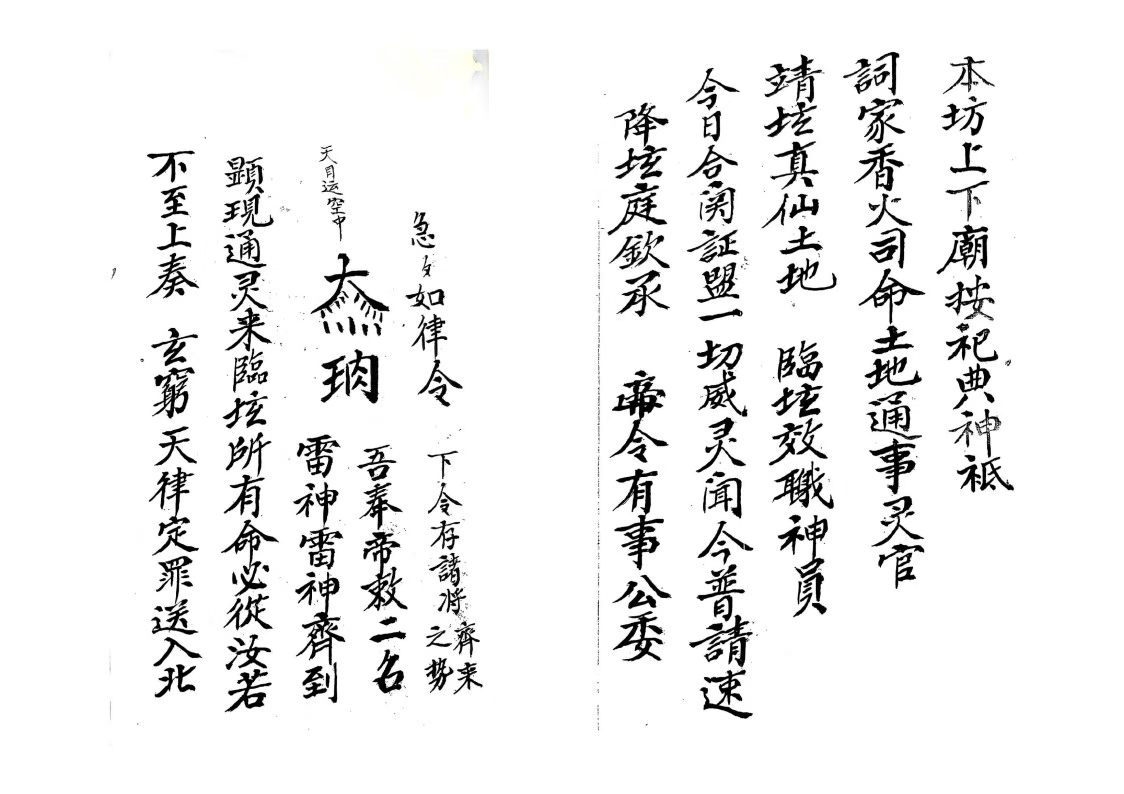 本坊上下廟按祀典神祗
詞家香火司命土地通事灵官
靖坛真仙土地 臨坛效職神員
今日合関証盟一切威灵闻今普請速
降坛庭欽承 帝令有事公委
急々如律令
下令存諸将齊来之势
吾奉帝敕二名
天目运空中
雷神雷神齊到
顕現通灵来臨坛所有命必從汝若
不至上奏 玄窮天律定罪送入北